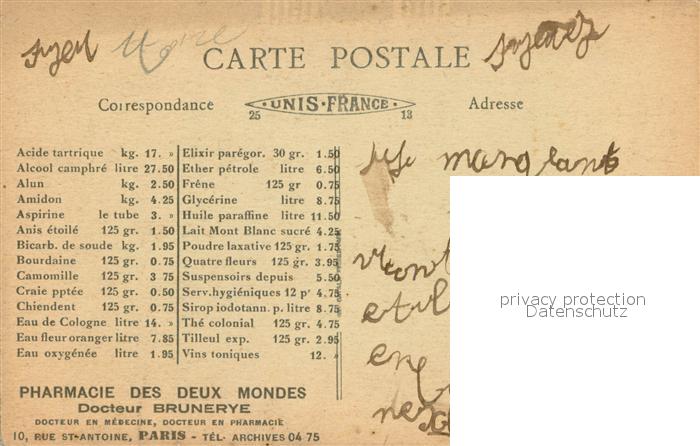 CARTE POSTALE
Correspondance UNIS-FRANCE Adresse
25 13
Acide tartrique kg. 17. »
Alcool camphré litre 27.50
Alun kg. 2.50
Amidon kg. 4.25
Aspirine le tube 3. »
Anis étoilé 125 gr. 1.50
Bicarb. de soude kg. 1.95
Bourdaine 125 gr. 0.75
Camomille 125 gr. 3 75
Craie pptée 125 gr. 0.50
Chiendent 125 gr. 0.75
Eau de Cologne litre 14. »
Eau fleur oranger litre 7.85
Eau oxygénée litre 1.95
Elixir parégor. 30 gr. 1.50
Ether pétrole litre 6.50
Frêne 125 gr 0.75
Glycérine litre 8.75
Huile paraffine litre 11.50
Lait Mont Blanc sucré 4.25
Poudre laxative 125 gr. 1.75
Quatre fleurs 125 gr. 3.95
Suspensoirs depuis 5.50
Serv. hygiéniques 12 pr 4.75
Sirop iodotann. p. litre 8.75
Thé colonial 125 gr. 4.75
Tilleul exp. 125 gr. 2.95
Vins toniques 12. »
PHARMACIE DES DEUX MONDES
Docteur BRUNERYE
DOCTEUR EN MÉDECINE, DOCTEUR EN PHARMACIE
10, RUE ST-ANTOINE, PARIS - TÉL- ARCHIVES 04 75
privacy protection
Datenschutz